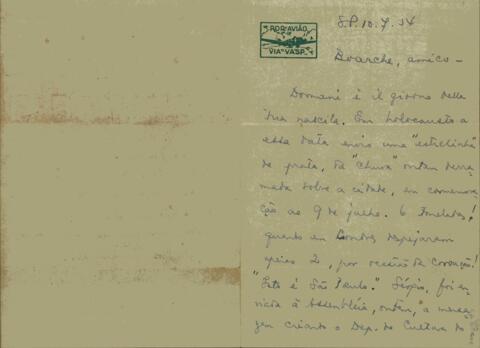 POR AVIÃO
VIA "VASP"
S.P. 10.7.54
Buarche, amico -
Domani è il giorno della
tua nascita. Em holocausto a
essa data envio uma "estrelinha"
de prata, da "chuva" ontem derra-
mada sobre a cidade, em comemora-
ção ao 9 de julho. 6 toneladas!
quanto em Londres despejaram
apenas 2, por ocasião da Coroação!
"Isto é São Paulo." Sérgio, foi en-
viada à Assembléia, ontem, a mensa-
gem criando o Dep. de Cultura do